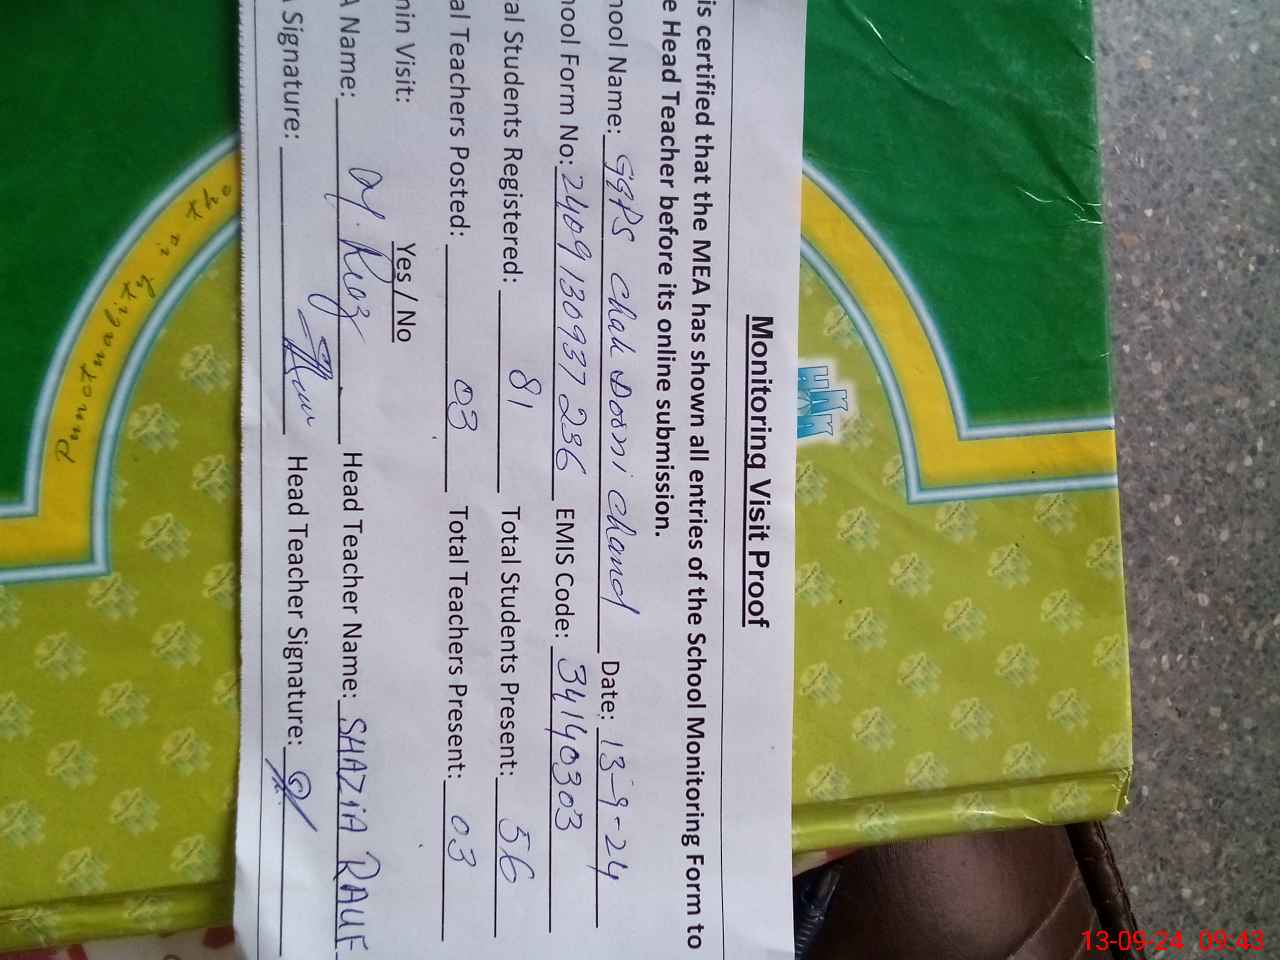 Monitoring Visit Proof
is certified that the MEA has shown all entries of the School Monitoring Form to
e Head Teacher before its online submission.
hool Name: GGPS Chak Dooni Chand Date: 13-9-24
hool Form No: 2409130937236 EMIS Code: 34140303
al Students Registered: 81 Total Students Present: 56
al Teachers Posted: 03 Total Teachers Present: 03
min Visit: Yes / No
A Name: M. Riaz Head Teacher Name: SHAZiA RAUF
A Signature: Head Teacher Signature:
punctuality is the
13-09-24 09:43